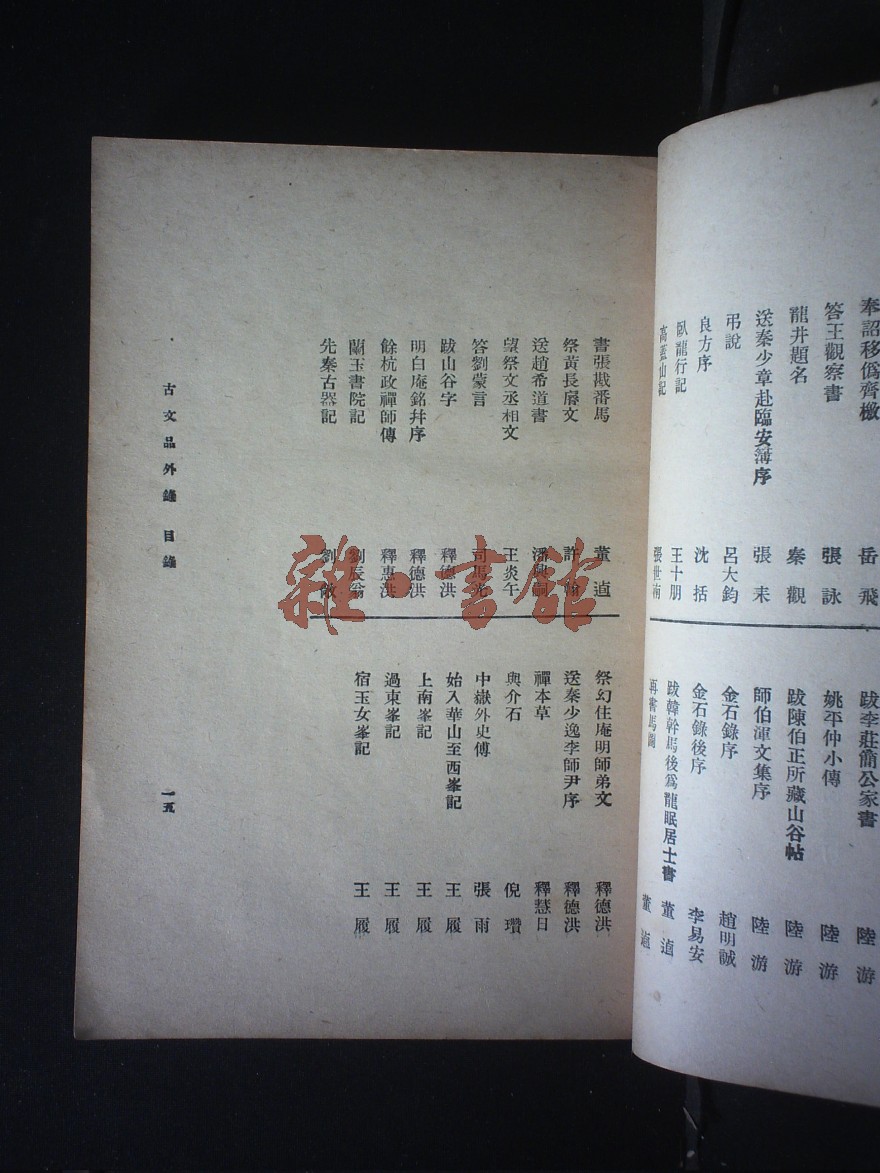 奉詔移偽齊檄 岳飛
答王觀察書 張詠
龍井題名 秦觀
送秦少章赴臨安簿序 張耒
弔說 呂大鈞
良方序 沈括
臥龍行記 王十朋
高蓋山記 張世南
跋李莊簡公家書 陸游
姚平仲小傳 陸游
跋陳伯正所藏山谷帖 陸游
師伯渾文集序 陸游
金石錄序 趙明誠
金石錄後序 李易安
跋韓幹馬後爲龍眠居士書 董逌
再書馬圖 董逌
書張戡番馬 董逌
祭黃長睿文 許翰
送趙希道書 潘興嗣
望祭文丞相文 王炎午
答劉蒙言 司馬光
跋山谷字 釋德洪
明白庵銘幷序 釋德洪
餘杭政禪師傳 釋惠洪
蘭玉書院記 劉辰翁
先秦古器記 劉敞
祭幻住庵明師弟文 釋德洪
送秦少逸李師尹序 釋德洪
禪本草 釋慧日
與介石 倪瓚
中嶽外史傳 張雨
始入華山至西峯記 王履
上南峯記 王履
過東峯記 王履
宿玉女峯記 王履
古文品外錄 目錄
一五
雜·書館